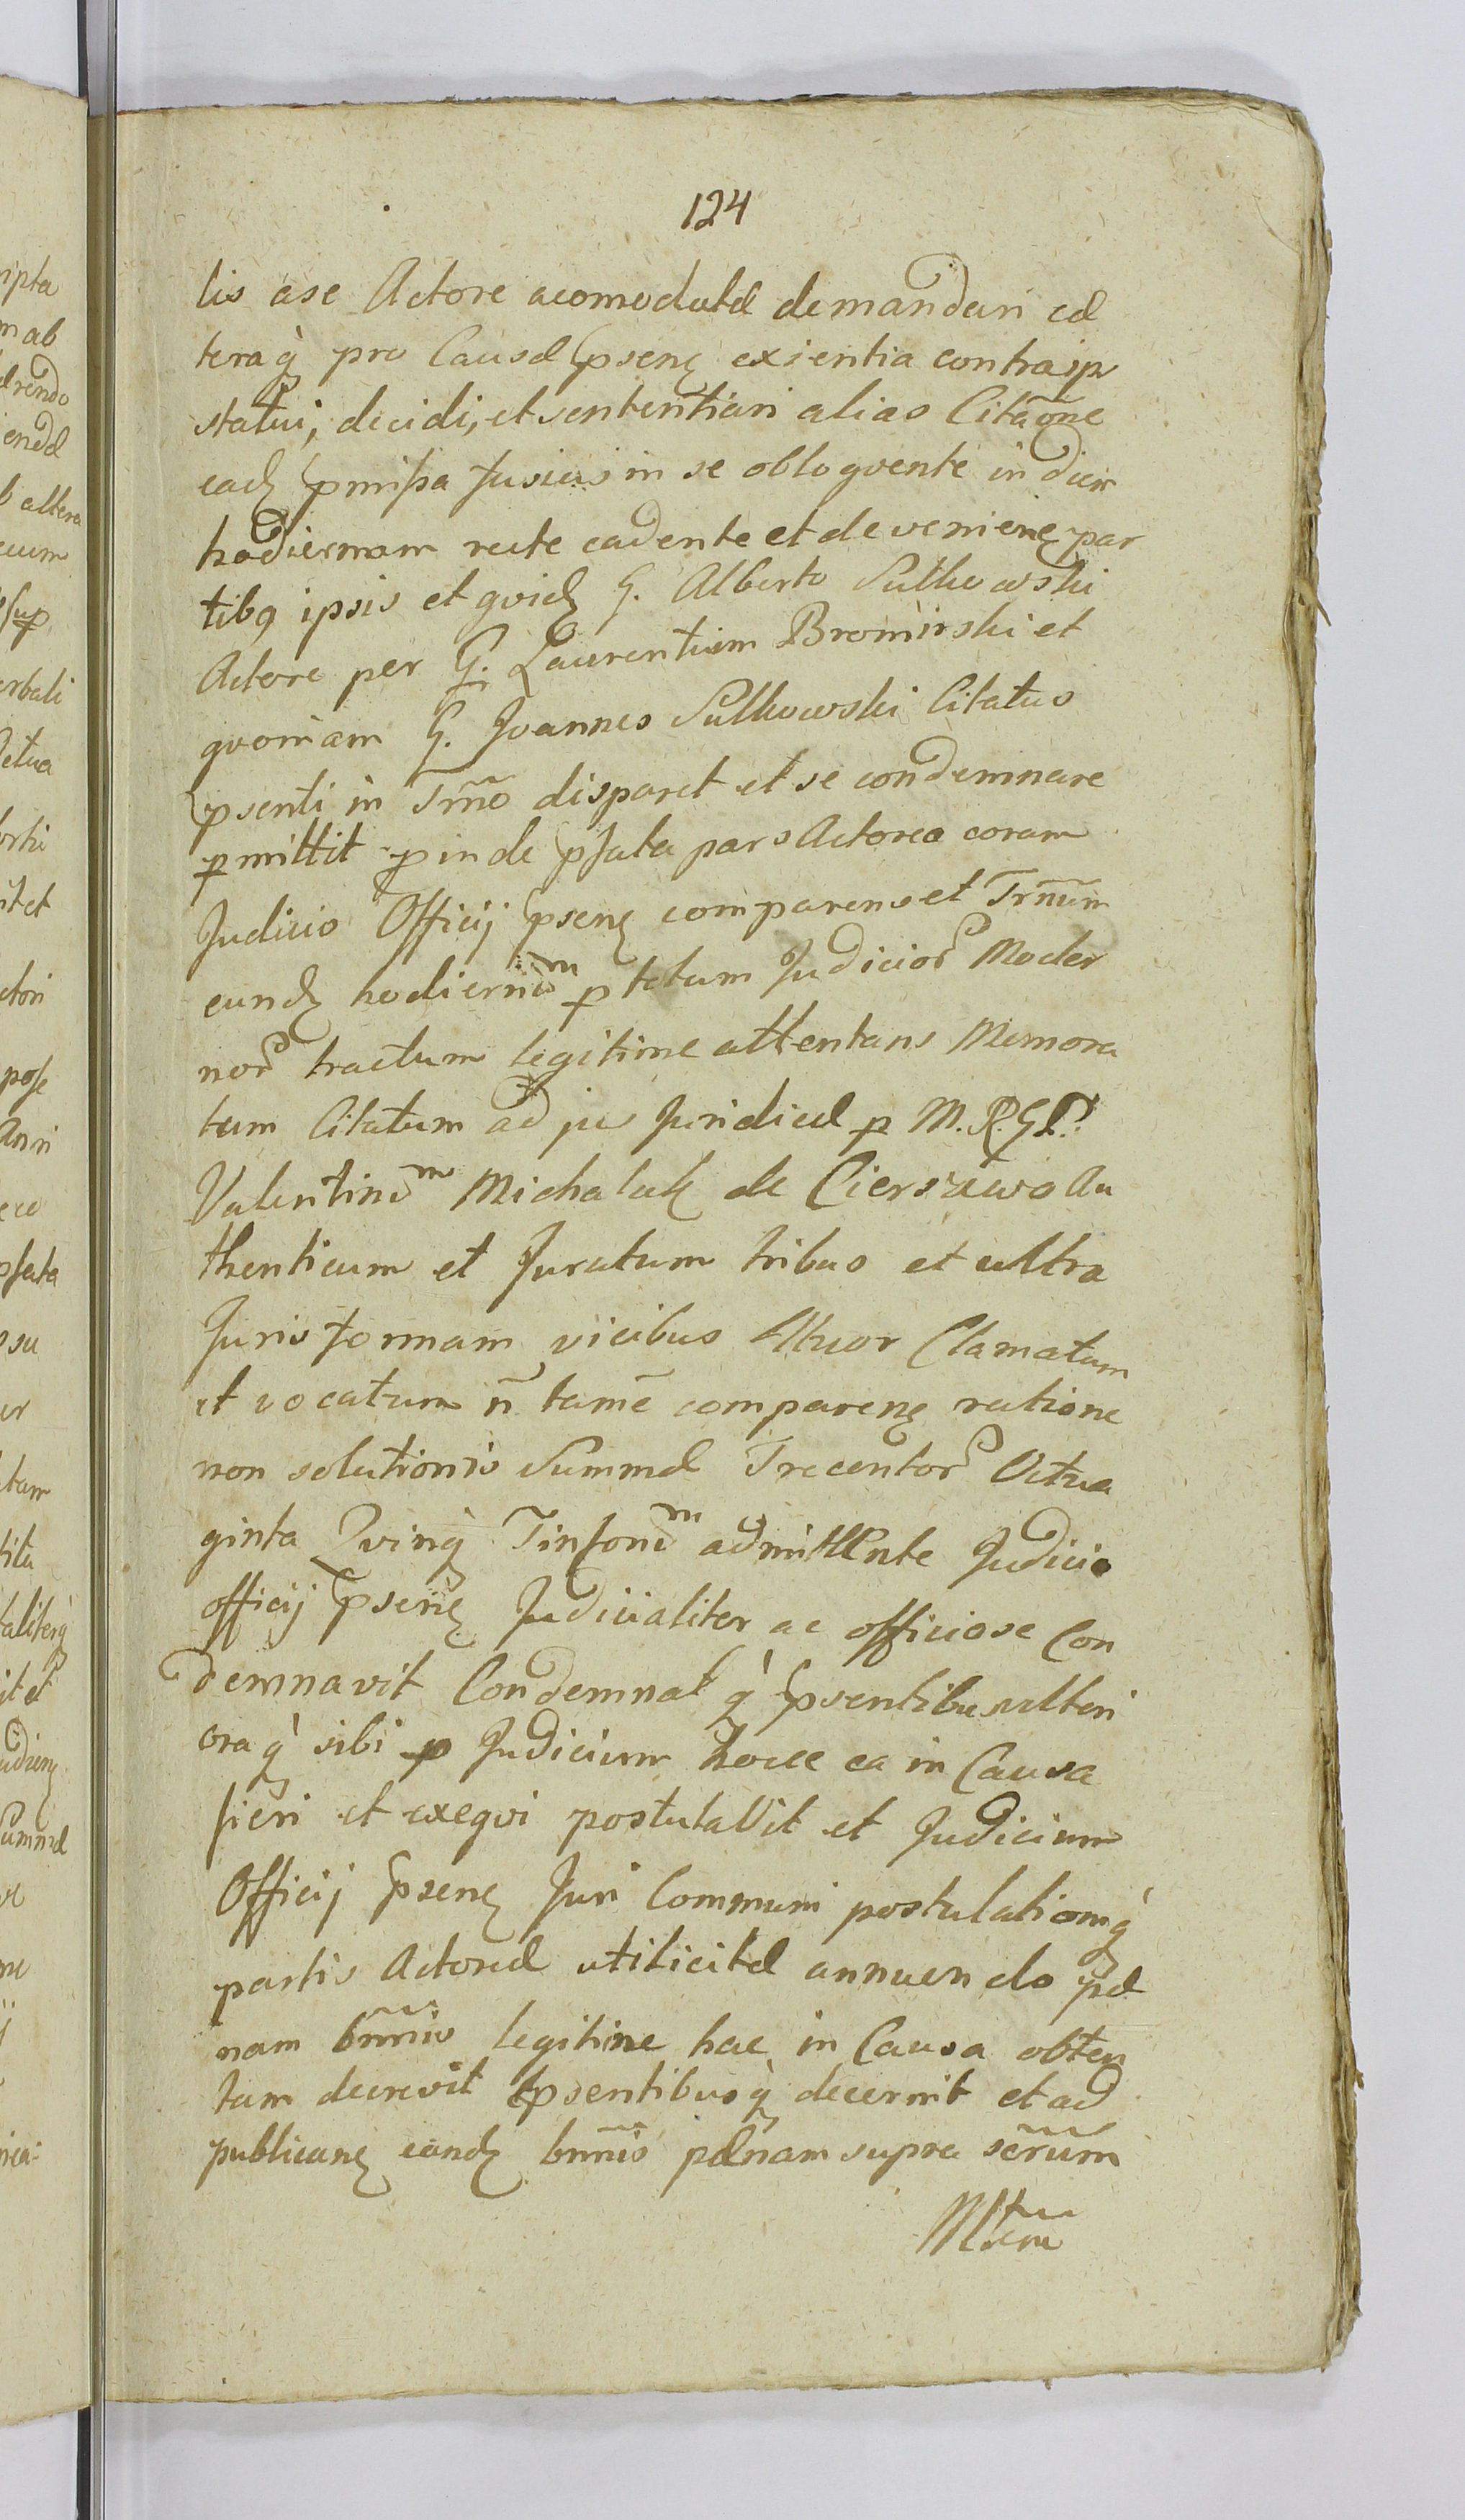 124
tis a se Actore acomodatæ demandari cæ
teraq̀ pro Causæ p̃senę exientia contra ip
statui, decidi, et sententiari alias Citãone
eadȝ p̃mißa fusius in se obloqvente in diem
hodiernam recte cadente et de venienę par
tibq ipsis et qvidȝ G. Alberto Sulkowski
Actore per G. Laurentium Bromirski et
qvoniam G. Joannes Sulkowski Citatus
p̃senti in Tm̃o disparet et se condemnare
ꝑmittit ꝓinde p̃fata pars Actorea coram
Judicio Officij p̃senę comparens et Trm̃um
eundȝ hodiernũm ꝑ totum Judicior̃ Moder
nor̃ tractum legitime attentans Memora
tum Citatum ad jus Juridicæ ꝑ M. R. G.
Valentinũm Michalak de Cierszewo Au
thenticum et Juratum tribus et ultra
Juris formam vicibus Attvor Clamatum
et vocatum ñ tamẽ comparenę ratione
non solutionis Summæ Trecentor̃ Octua
ginta Qvinq̀ Tinfonũm admittente Judicio
officij p̃senę Judicialiter ac officiose Con
demnavit Condemnatq̀ p̃sentibus ulteri
oraq̀ sibi ꝑ Judicium hocce ea in Causa
fieri et exeqvi postulavit et Judicium
Officij p̃senę Juri Communi postulationiq̀
partis Actoreæ utilicitæ annuendo pæ
nam bñnis legitime hac in Causa obten
tam decrevit p̃sentibusq̀ decernit et ad
publicanę eandȝ bñnis pænam supra sẽrum
Mt̃em